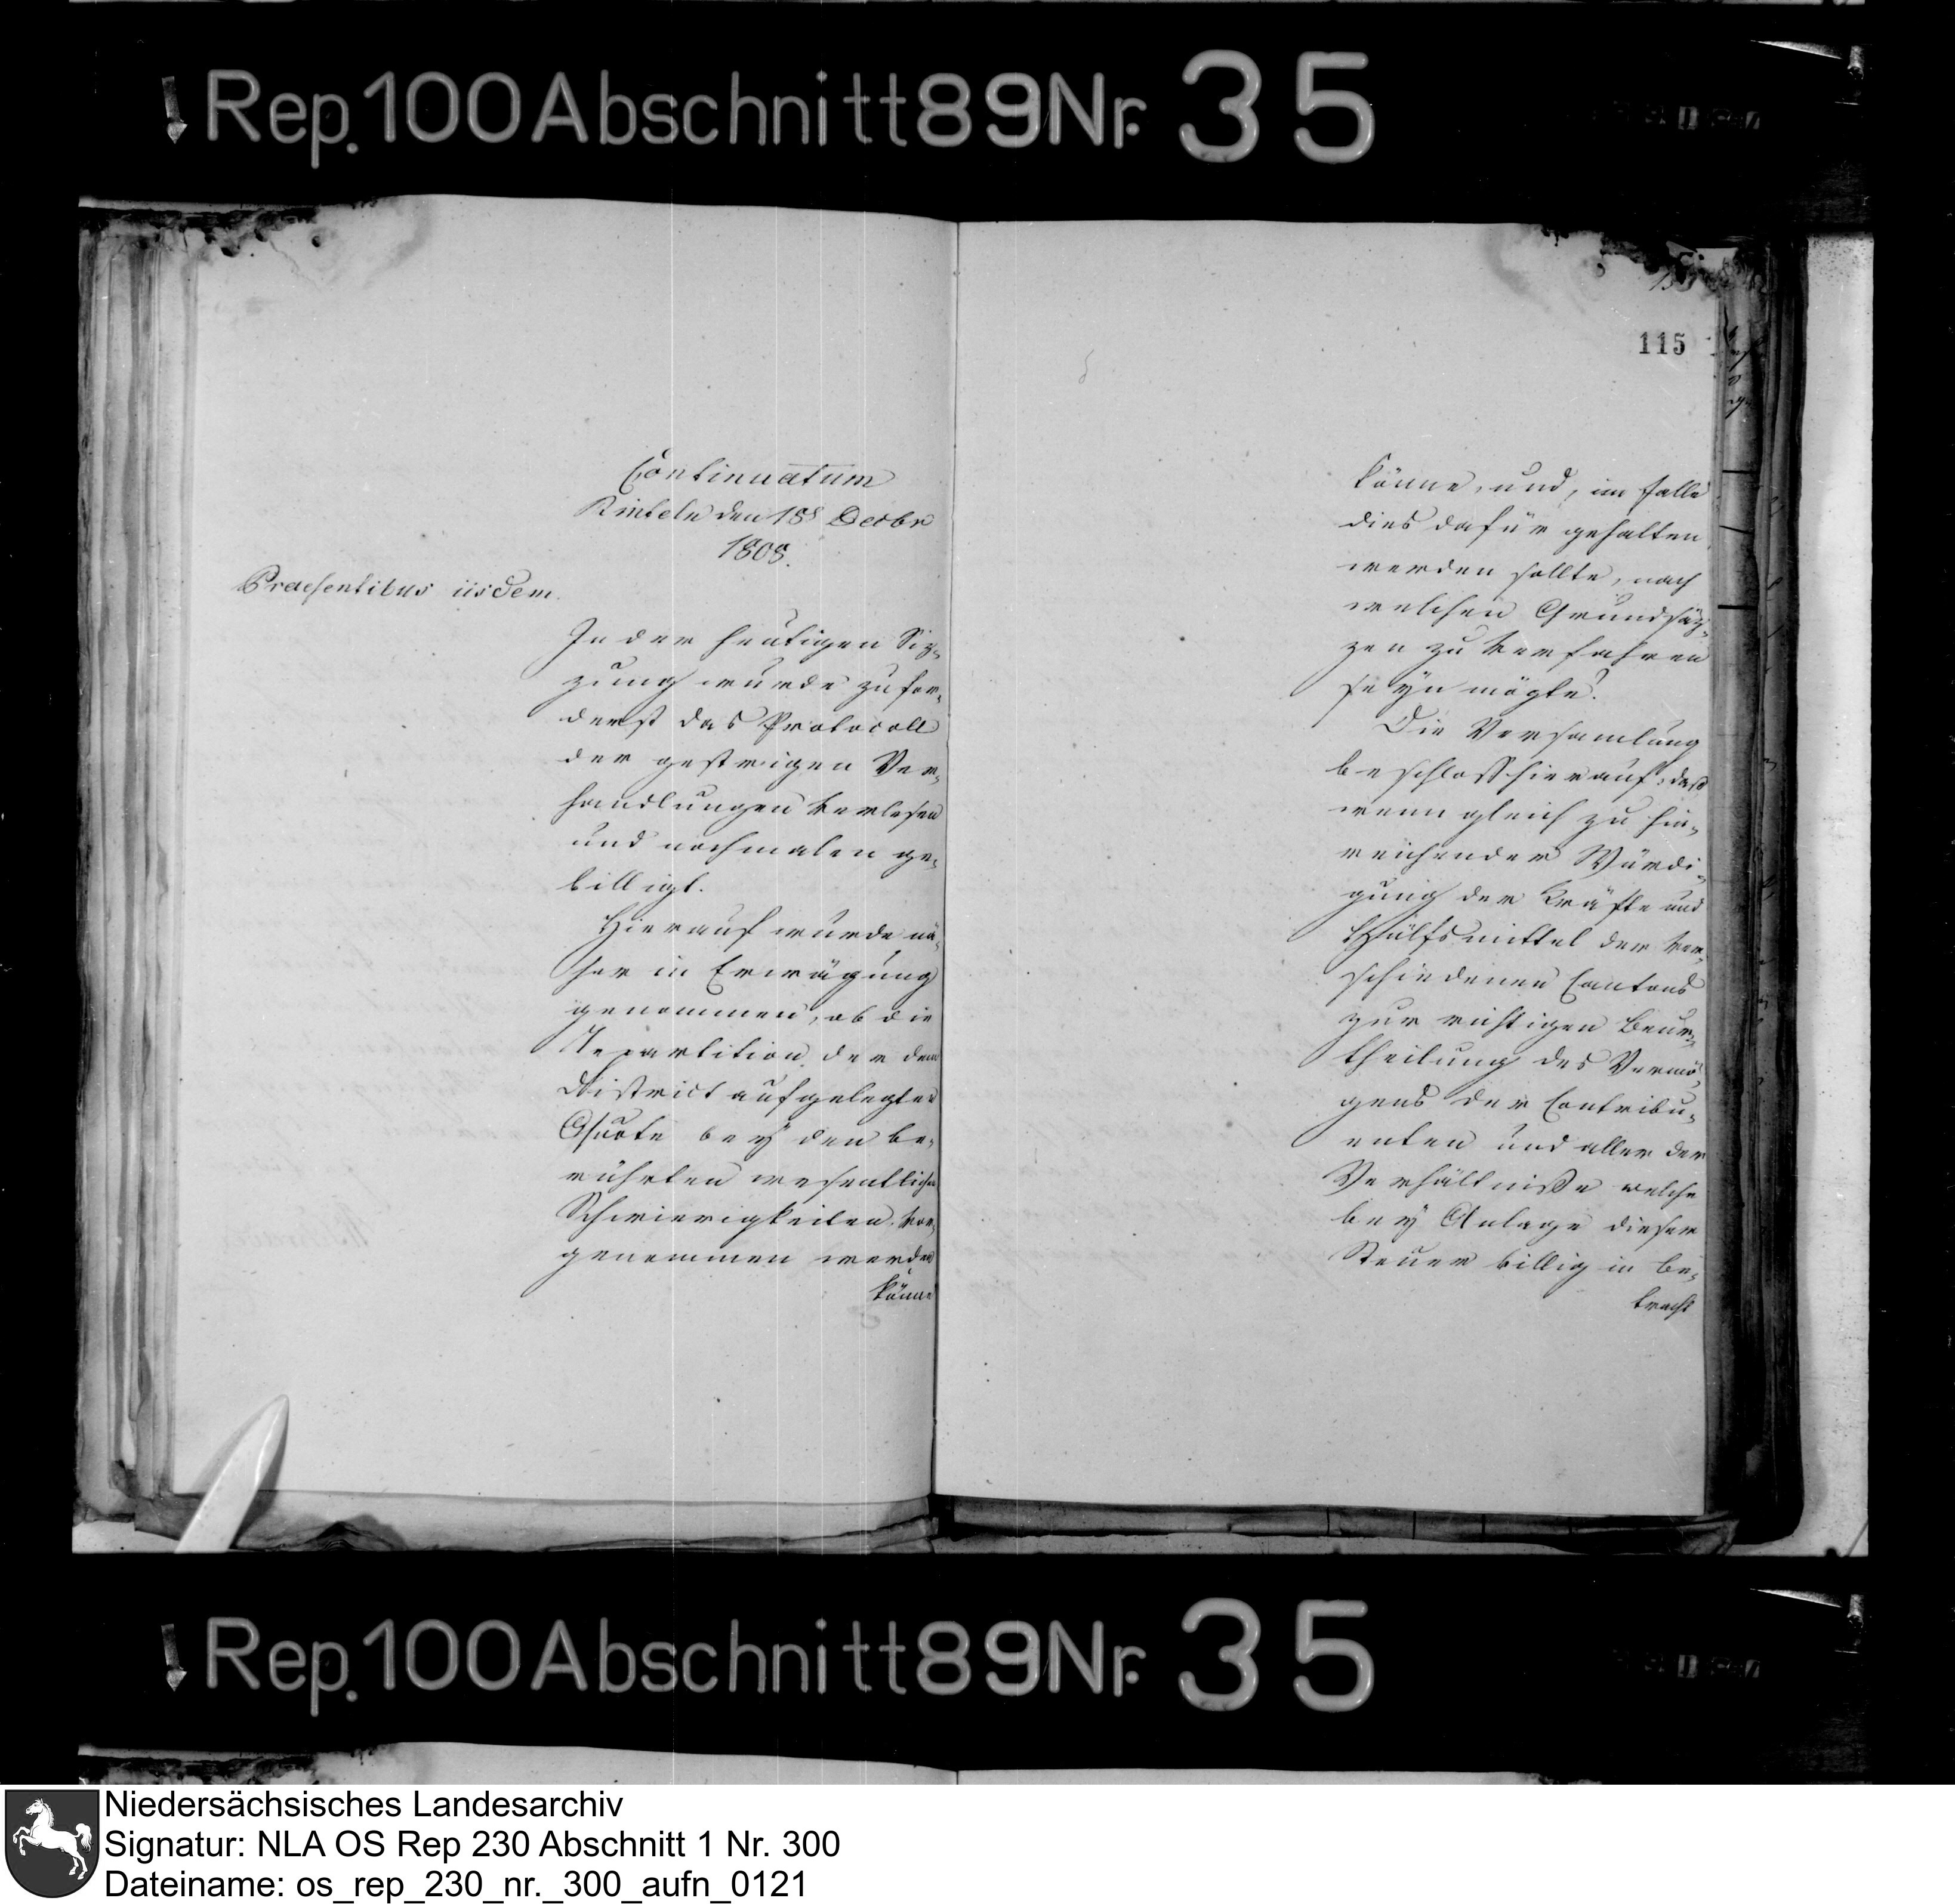 Rep. 100 Abschnitt 89 Nr. 35
115
Continuatum
Rinteln den 18t Decbr
1808.
Praesentibus iisdem.
In der heutigen Siz-
zung wurde zufor-
derst das Protocoll
der gestrigen Ver-
handlungen verlesen
und nochmalen ge-
billigt.
Hierauf wurde nä-
her in Erwägung
genommen, ob die
Repartition der dem
District aufgelegten
Quote bey den be-
rührten wesentlichen
Schwierigkeiten vor-
genommen werden
könne
könne, und, im Falle
dies dafür gehalten
werden sollte, nach
welchen Grundsäz-
zen zu verfahren
seyn mögte.
Die Versamlung
beschloß hierauf: daß
wenn gleich zu hin-
reichender Würdi-
gung der Kräfte und
Hülfsmittel der ver-
schiedenen Cantons
zur richtigen Beur-
theilung des Vermö-
gens der Contribu-
enten und aller der
Verhältniße welche
bey Anlage dieser
Steuer billig in Be-
tracht
Rep. 100 Abschnitt 89 Nr. 35
Niedersächsisches Landesarchiv
Signatur: NLA OS Rep 230 Abschnitt 1 Nr. 300
Dateiname: os_rep_230_nr._300_aufn_0121